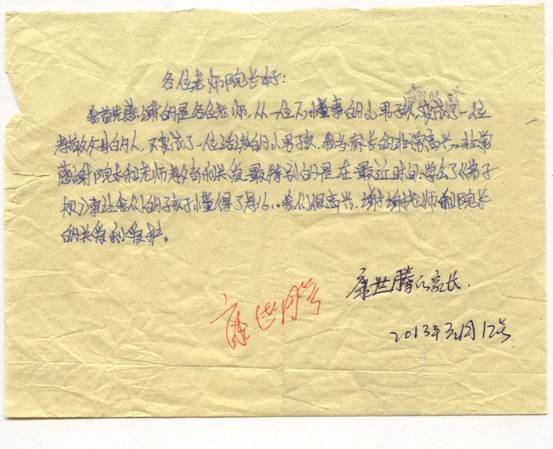 各位老师院长好:
我首先感谢的是各位老师,从一位不懂事的小男孩变成了一位
孝敬父母的人,又变成了一位活泼的小男孩,我当家长的非常高兴。非常
感谢院长和老师教育和关爱,最特别的是,在最近时间,学会了《弟子
规》更让我们的孩子懂得了易心。我们很高兴,谢谢老师和院长
的关爱和爱护。
康世腾的家长
康世腾
2013年3月12号